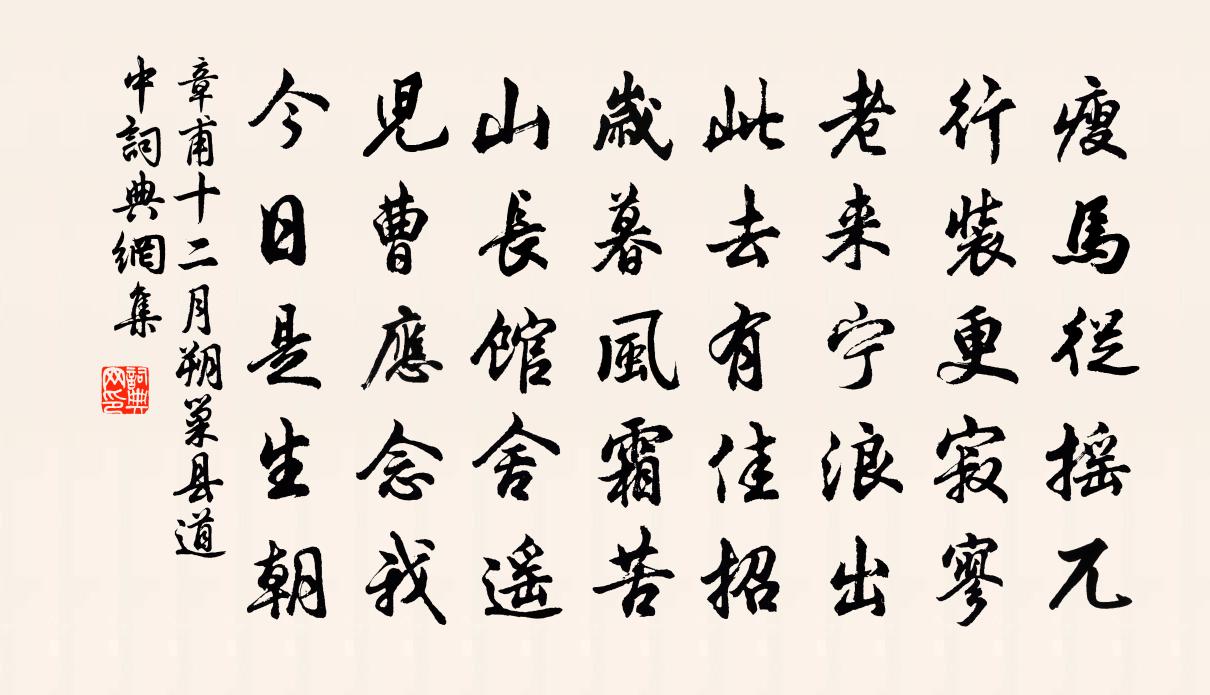 瘦馬從摇兀
行裝更寂寥
老来宁浪出
此去有佳招
歲暮風霜苦
山長馆舍遥
児曹應念我
今日是生朝
章甫十二月朔巢县道
中詞典網集
詞典
网印